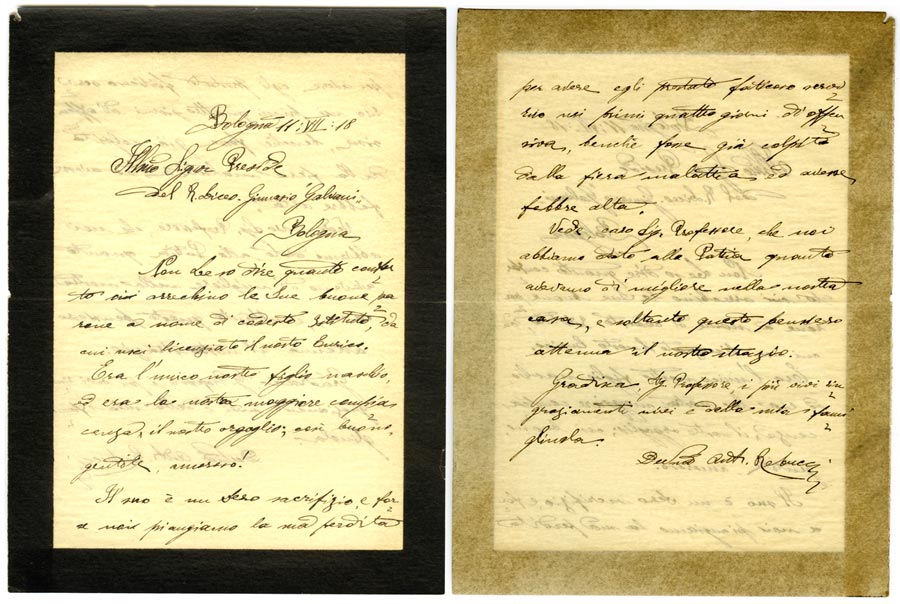 Bologna 11:VII:18
Ill.mo Signor Preside
del R. Liceo. Ginnasio Galvani.
Bologna
Non Le so dire quanto confor
to ci arrechino le Sue buone pa
role a nome di codesto Istituto, da
cui uscì licenziato il nostro Enrico.
Era l'unico nostro figlio maschio,
ed era la nostra maggiore compia
cenza, il nostro orgoglio; così buono,
gentile, amoroso!
Il suo è un vero sacrifizio, e for
a noi piangiamo la sua perdita
per avere egli prestato faticoso servi
zio nei primi quattro giorni di offen
siva, benché fosse già colpito
dalla fiera malattia ed avesse
febbre alta.
Vede caro Sig. Professore, che noi
abbiamo dato alla Patria quanto
avevamo di migliore nella nostra
casa, e soltanto questo pensiero
attenua il nostro strazio.
Gradisca, Sig. Professore, i più vivi rin
graziamenti miei e della mia fami
gliuola.